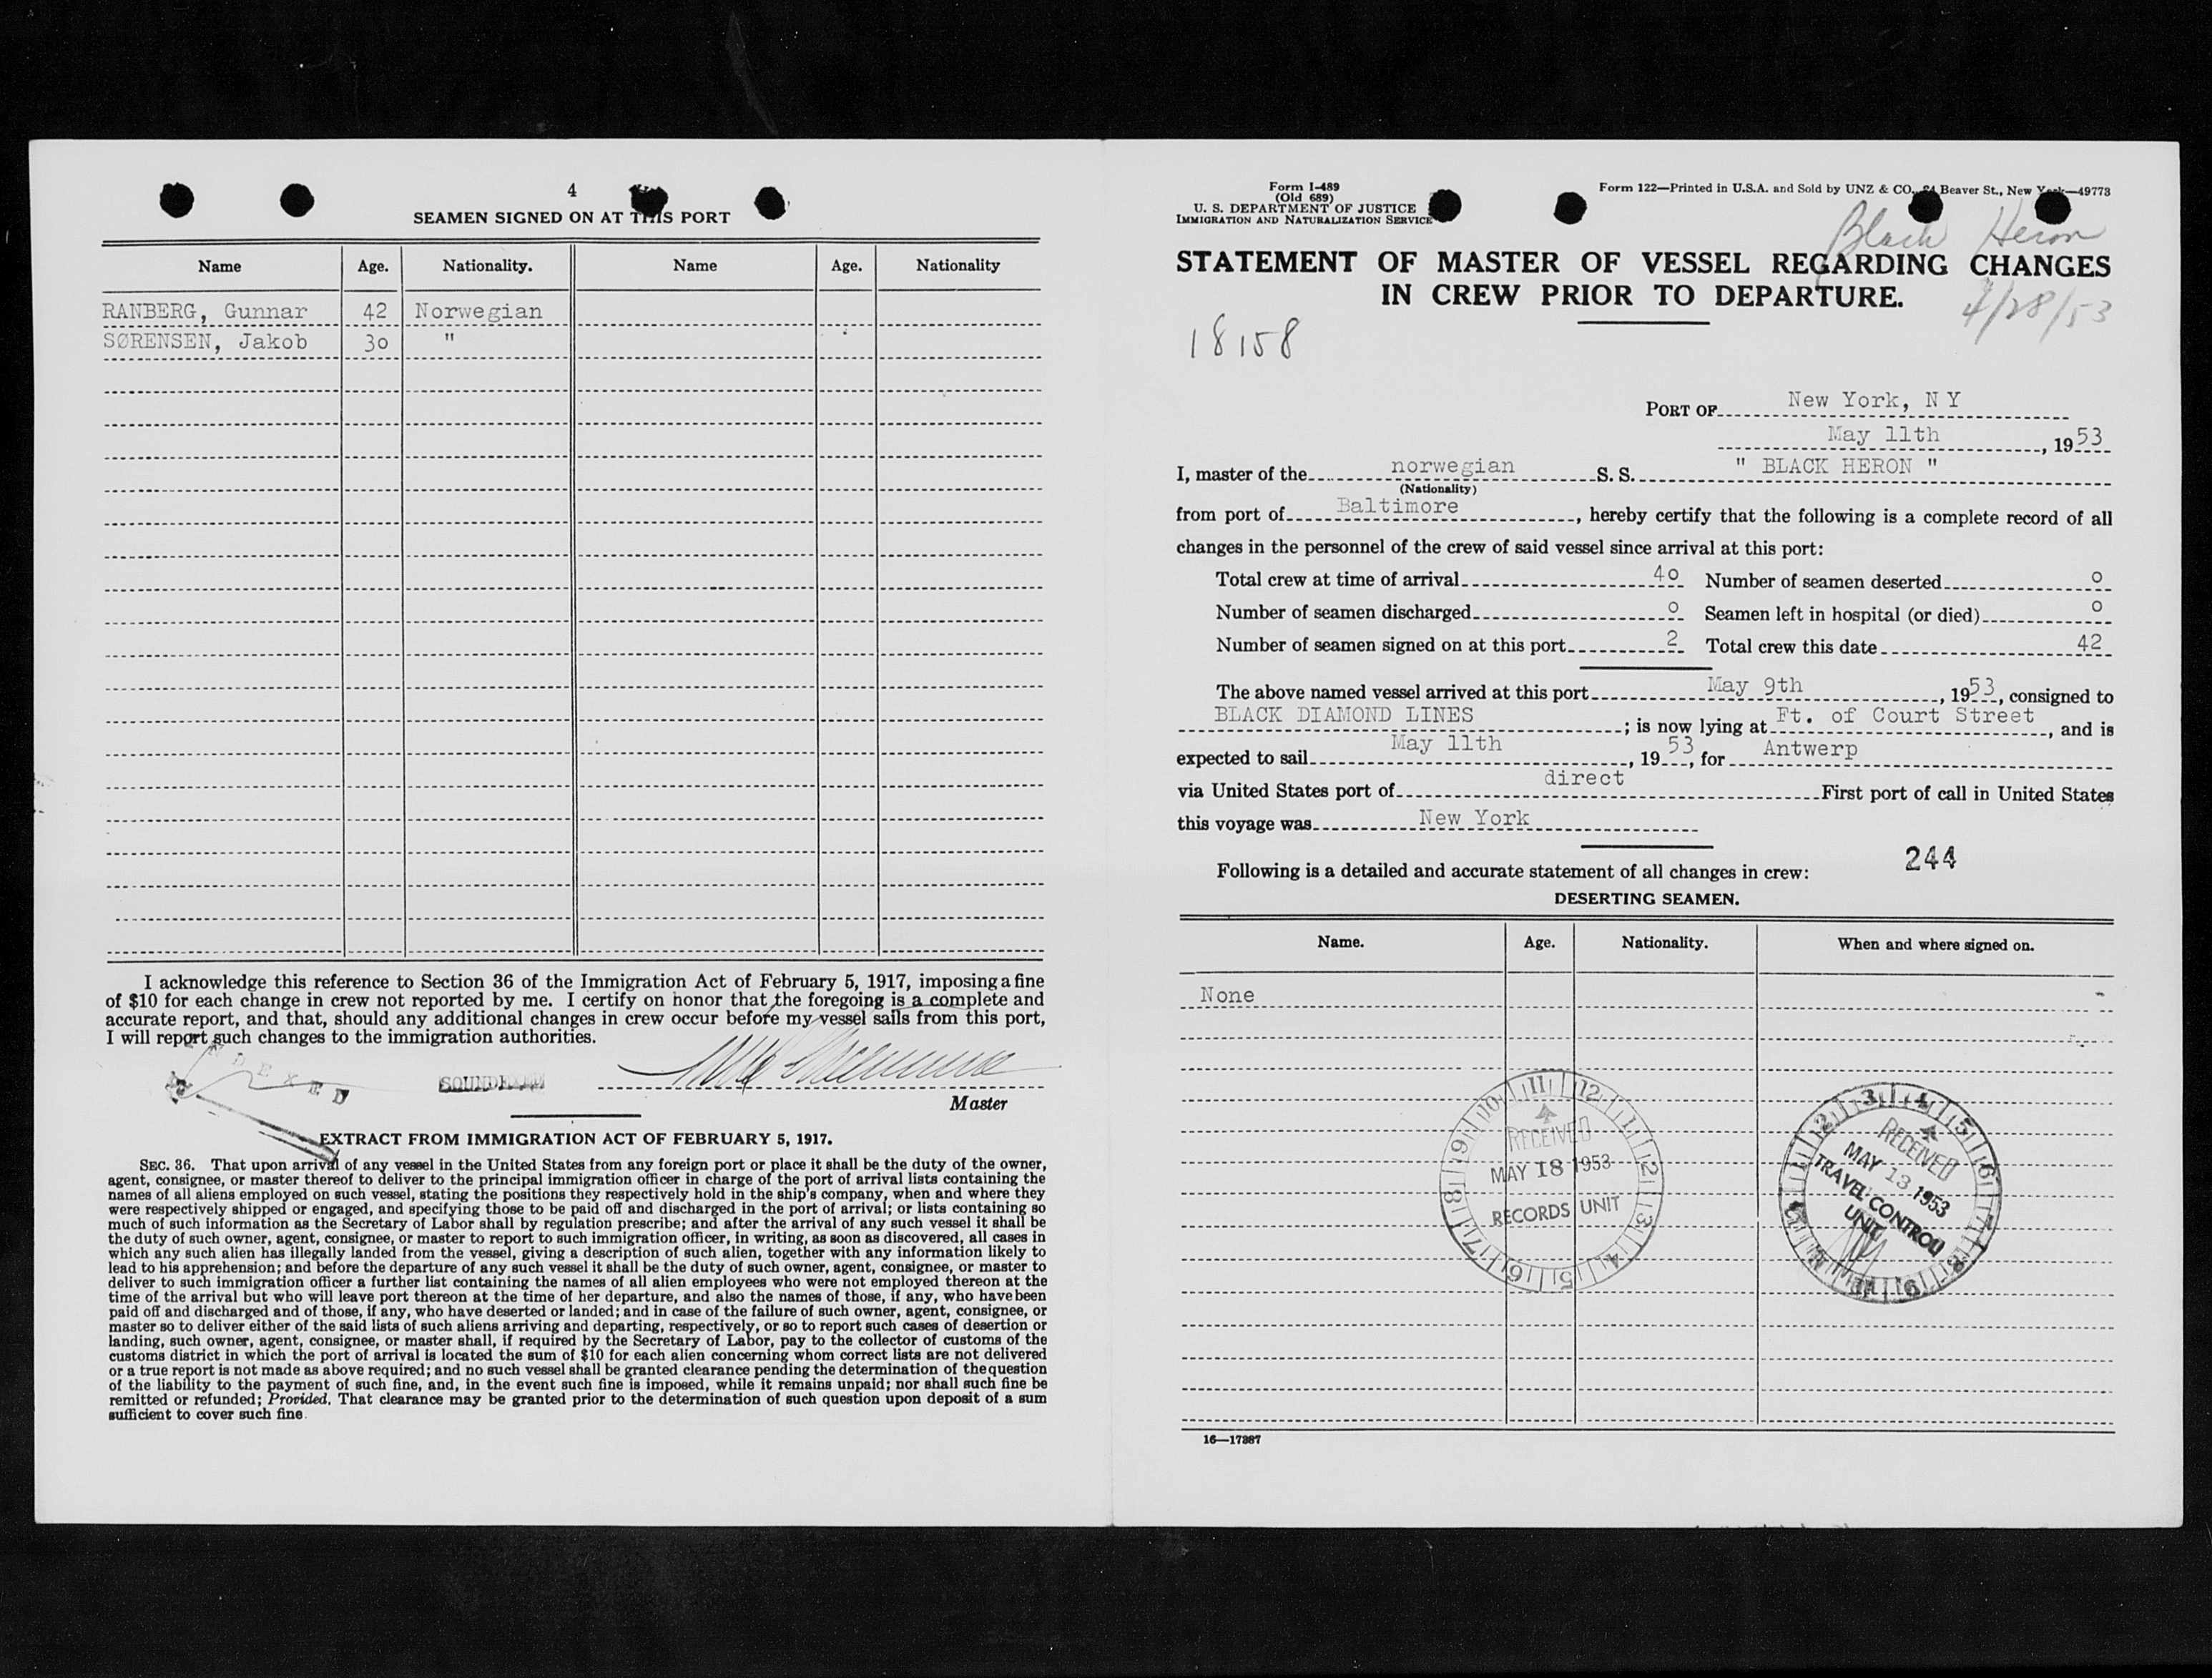 4
SEAMEN SIGNED ON AT THIS PORT
Name Age. Nationality. Name Age. Nationality
RANBERG, Gunnar 42 Norwegian
SØRENSEN, Jakob 30 "
I acknowledge this reference to Section 36 of the Immigration Act of February 5, 1917, imposing a fine
of $10 for each change in crew not reported by me. I certify on honor that the foregoing is a complete and
accurate report, and that, should any additional changes in crew occur before my vessel sails from this port,
I will report such changes to the immigration authorities.
Master
EXTRACT FROM IMMIGRATION ACT OF FEBRUARY 5, 1917.
SEC. 36. That upon arrival of any vessel in the United States from any foreign port or place it shall be the duty of the owner,
agent, consignee, or master thereof to deliver to the principal immigration officer in charge of the port of arrival lists containing the
names of all aliens employed on such vessel, stating the positions they respectively hold in the ship's company, when and where they
were respectively shipped or engaged, and specifying those to be paid off and discharged in the port of arrival; or lists containing so
much of such information as the Secretary of Labor shall by regulation prescribe; and after the arrival of any such vessel it shall be
the duty of such owner, agent, consignee, or master to report to such immigration officer, in writing, as soon as discovered, all cases in
which any such alien has illegally landed from the vessel, giving a description of such alien, together with any information likely to
lead to his apprehension; and before the departure of any such vessel it shall be the duty of such owner, agent, consignee, or master to
deliver to such immigration officer a further list containing the names of all alien employees who were not employed thereon at the
time of the arrival but who will leave port thereon at the time of her departure, and also the names of those, if any, who have been
paid off and discharged and of those, if any, who have deserted or landed; and in case of the failure of such owner, agent, consignee, or
master so to deliver either of the said lists of such aliens arriving and departing, respectively, or so to report such cases of desertion or
landing, such owner, agent, consignee, or master shall, if required by the Secretary of Labor, pay to the collector of customs of the
customs district in which the port of arrival is located the sum of $10 for each alien concerning whom correct lists are not delivered
or a true report is not made as above required; and no such vessel shall be granted clearance pending the determination of the question
of the liability to the payment of such fine, and, in the event such fine is imposed, while it remains unpaid; nor shall such fine be
remitted or refunded; Provided, That clearance may be granted prior to the determination of such question upon deposit of a sum
sufficient to cover such fine.
Form I-489
(Old 689)
U. S. DEPARTMENT OF JUSTICE
IMMIGRATION AND NATURALIZATION SERVICE
Form 122—Printed in U.S.A. and Sold by UNZ & CO., Beaver St., New York—49773
Black Heron
STATEMENT OF MASTER OF VESSEL REGARDING CHANGES
IN CREW PRIOR TO DEPARTURE.
4/28/53
18158
PORT OF New York, N Y
May 11th, 1953
I, master of the norwegian S. S. " BLACK HERON "
(Nationality)
from port of Baltimore, hereby certify that the following is a complete record of all
changes in the personnel of the crew of said vessel since arrival at this port:
Total crew at time of arrival 40 Number of seamen deserted 0
Number of seamen discharged 0 Seamen left in hospital (or died) 0
Number of seamen signed on at this port 2 Total crew this date 42
The above named vessel arrived at this port May 9th, 1953, consigned to
BLACK DIAMOND LINES; is now lying at Ft. of Court Street, and is
expected to sail May 11th, 1953, for Antwerp
via United States port of direct First port of call in United States
this voyage was New York
244
Following is a detailed and accurate statement of all changes in crew:
DESERTING SEAMEN.
Name. Age. Nationality. When and where signed on.
None
RECEIVED
MAY 18 1953
RECORDS UNIT
RECEIVED
MAY 13 1953
TRAVEL CONTROL
UNIT
16—17387